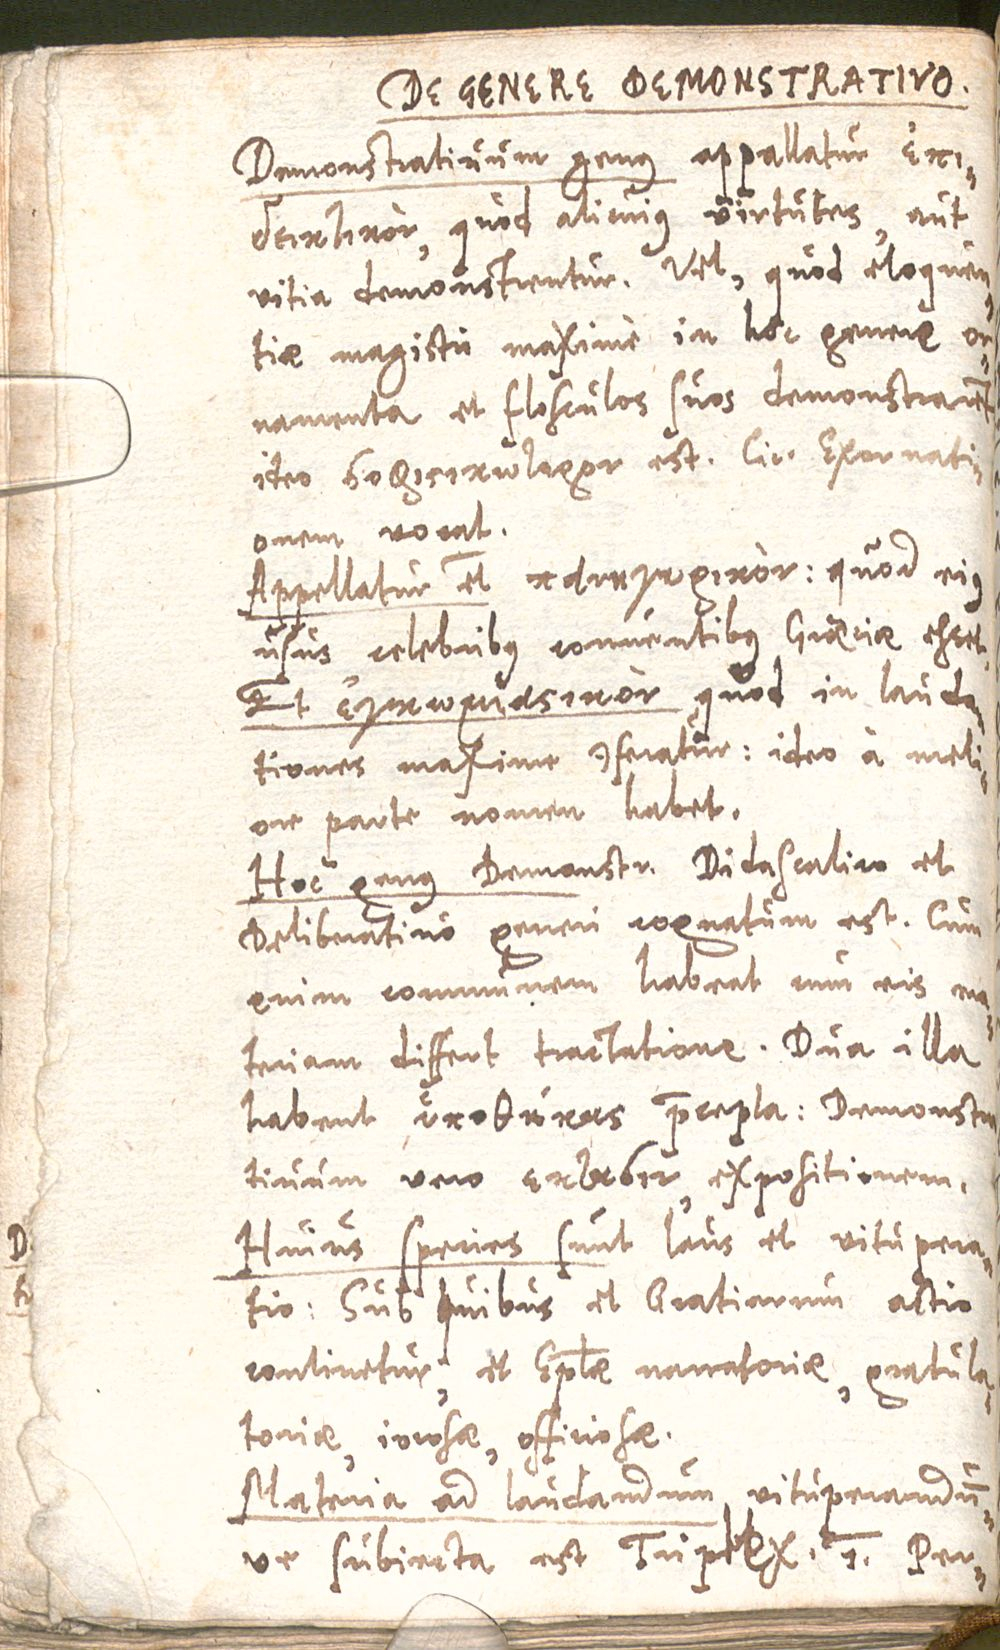 DE GENERE DEMONSTRATIVO.
Demonstratiuum genus appallatur ἐπι„
δεικτικὸν, quod alicuius virtutes, aut
vitia demonstrentur. Vel, quod eloquen„
tiæ magistri maxime in hoc genere or„
namenta et flosculos suos demonstrarēt
ideo est. Cic. Exornati„
onem vocat.
Appellatur et πανηγυρικὸν: quod eius
usus celebribus conuentibus Græciæ esset.
Et ἐγκωμιαστικὸν quod in lauda„
tiones maxime ɔferatur: ideo à meli„
ore parte nomen habet.
Hoc genus Demonstr. Didascalico et
Deliberatiuo generi cognatum est. Cum
enim communem habeat cum eis ma„
teriam differt tractatione. Dua illa
habent ὑποθήκας p̄cepta: Demonstra
tiuum vero ἔκθεσιν, expositionem.
Huius species sunt laus et vitupera„
tio: Sub quibus et Gratiarum actio
continetur, et Eplæ narratoriæ, gratula„
toriæ, iocosæ, officiosæ.
Materia ad laudandum, vituperandū„
ve subiecta est Triplex. 1. Per„
D